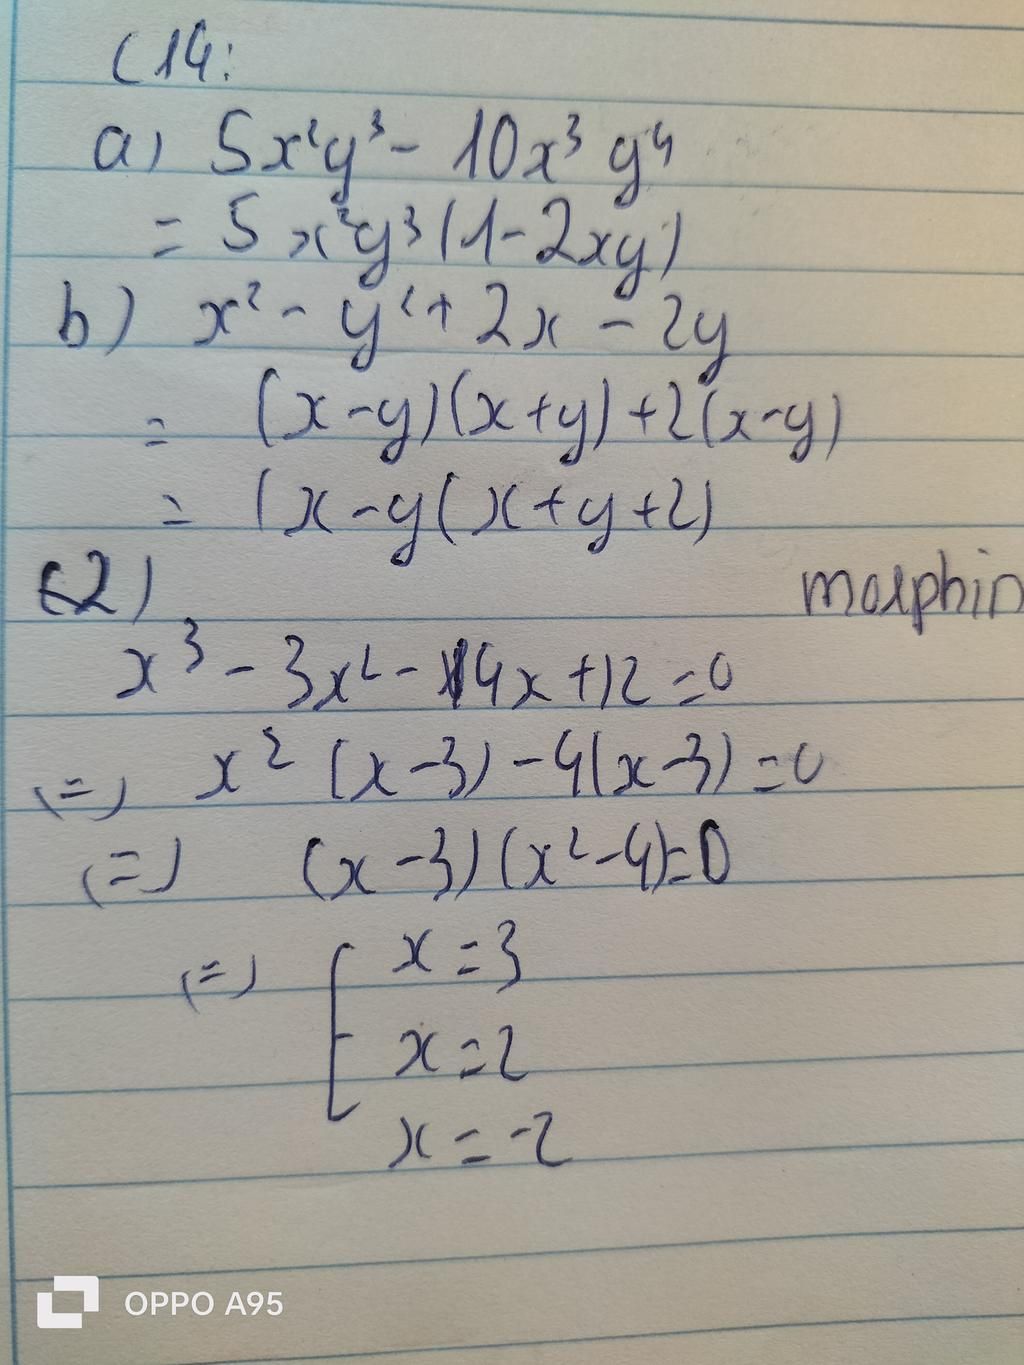 C14:
a) 5x²y³ - 10x³y⁴
= 5x²y³(1-2xy)
b) x² - y² + 2x - 2y
= (x-y)(x+y)+2(x-y)
= (x-y(x+y+2)
C2)
morphin
x³ - 3x² - 4x + 12 = 0
(=) x² (x-3) - 4(x-3) = 0
(=) (x-3)(x²-4)=0
(=) [ x = 3
x = 2
x = -2
OPPO A95